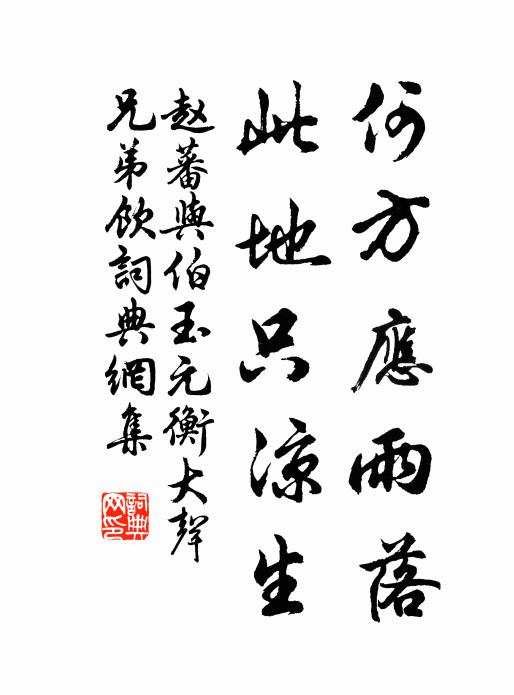 何方應雨落
此地只涼生
赵蕃與伯玉元衡大聲
兄弟飲詞典網集
詞典
网印